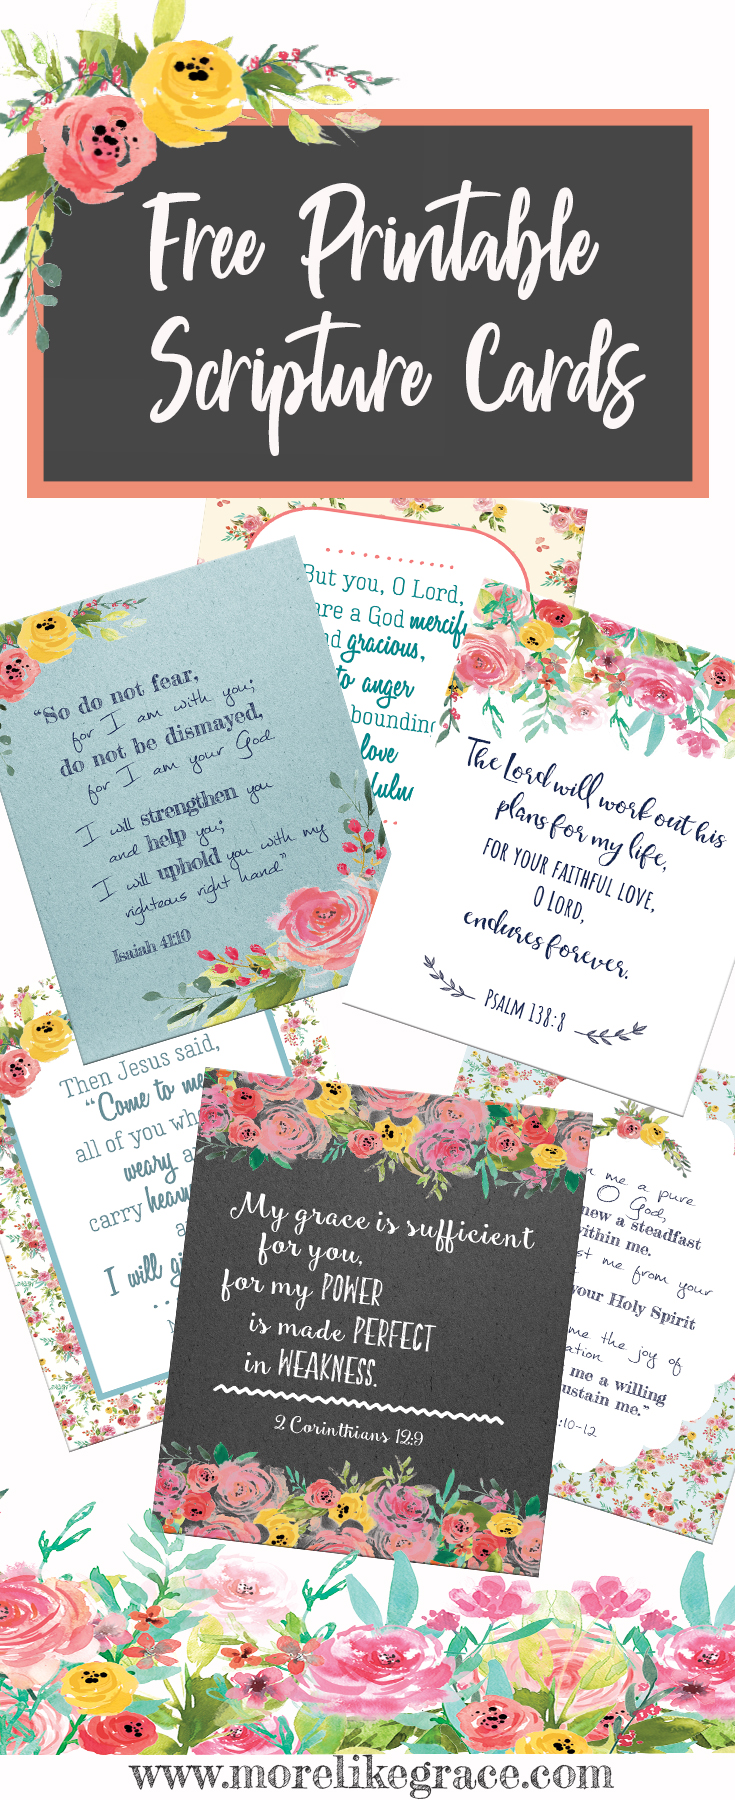 Free Printable
Scripture Cards
But you, O Lord,
are a God
gracious,
to anger
love
"So do not fear,
for I am with you;
do not be dismayed,
for I am your God
I will strengthen you
and help you;
I will uphold you with my
righteous right hand"
Isaiah 41:10
The Lord will work out his
plans for my life,
FOR YOUR FAITHFUL LOVE,
O LORD,
endures forever.
PSALM 138:8
Then Jesus said,
"Come to me
all of you
weary
carry
I will
My grace is sufficient
for you,
for my POWER
is made PERFECT
in WEAKNESS.
2 Corinthians 12:9
me a pure
O God,
a steadfast
within me.
me from your
your Holy Spirit
me the joy of
me a willing
sustain me."
:10-12
www.morelikegrace.com